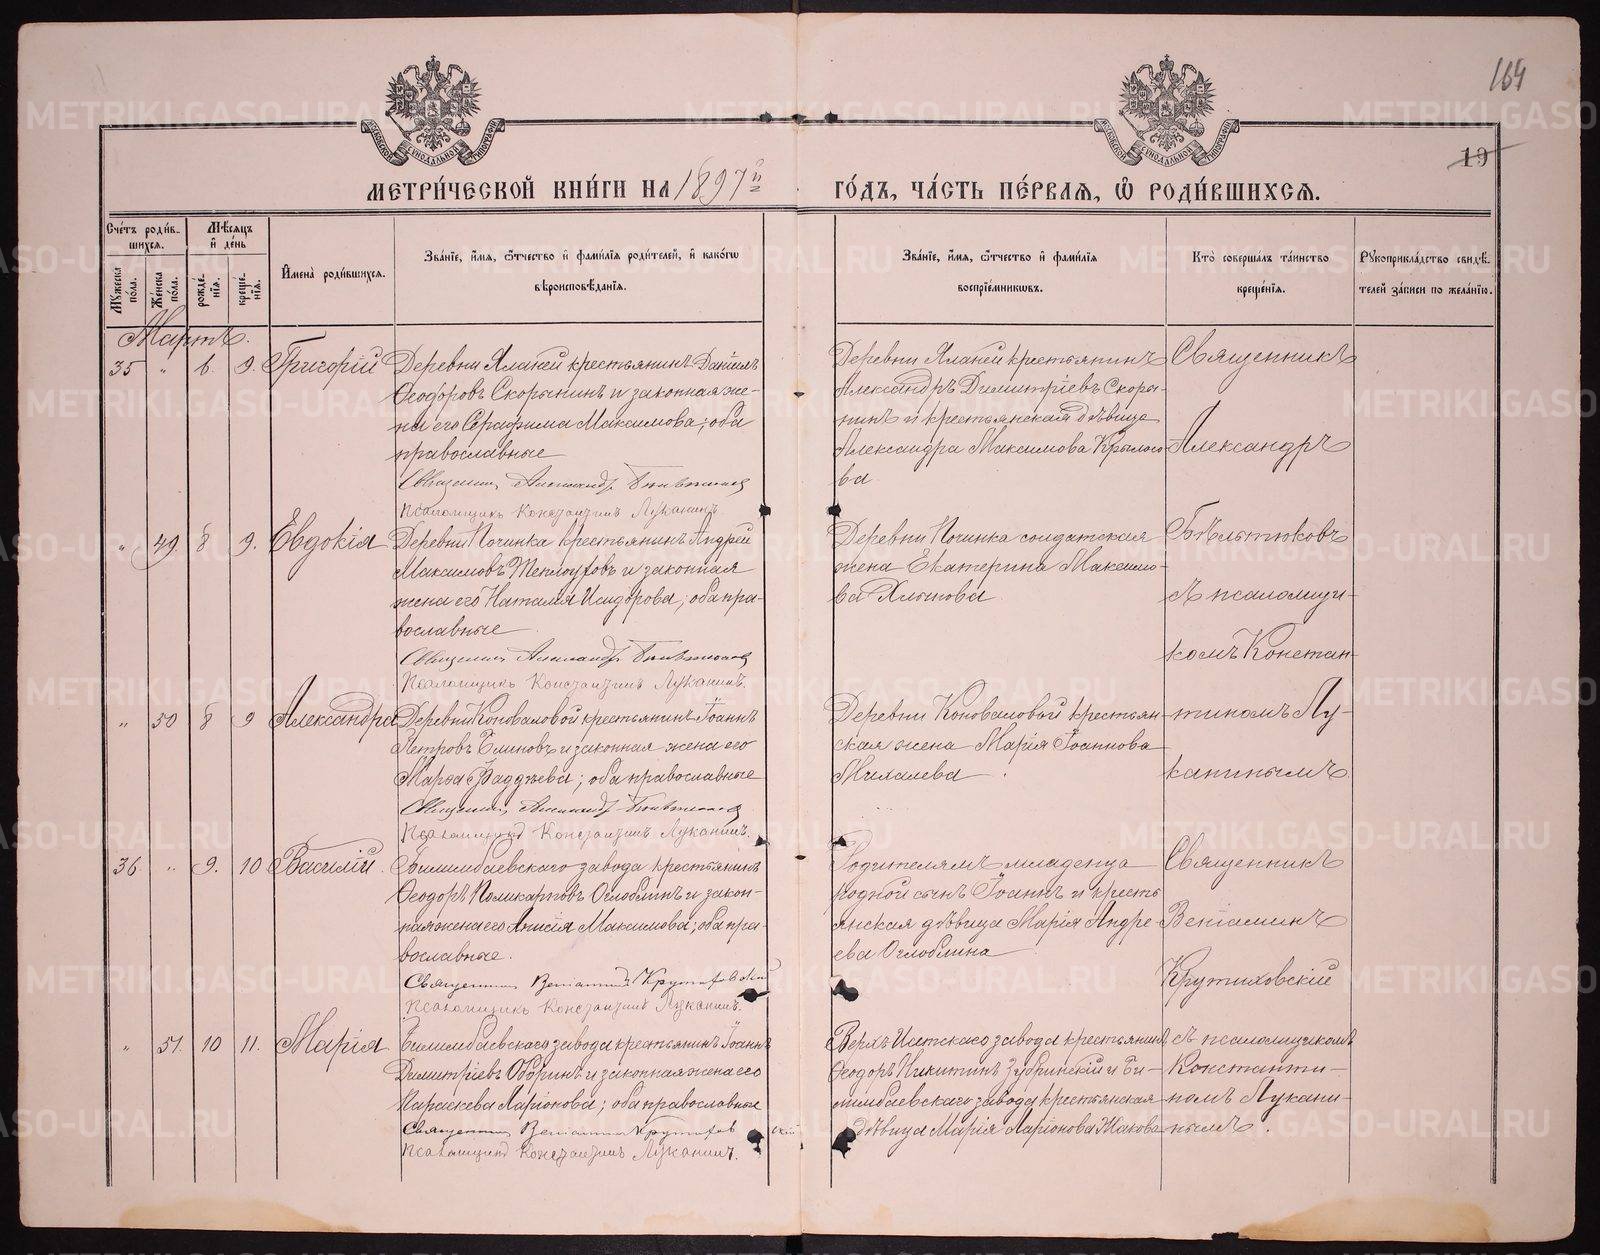 164
19
МОСКОВСКОЙ СѴНОДАЛЬНОЙ ТИПОГРАФІИ
МОСКОВСКОЙ СѴНОДАЛЬНОЙ ТИПОГРАФІИ
МЕТРИ́ЧЕСКОЙ КНИ́ГИ НА 1897й ГО́ДЪ, ЧА́СТЬ ПЕ́РВАЯ, Ѿ РОДИ́ВШИХСЯ.
Сче́тъ роди́в-
шихся.
Мѣ́сяцъ
и҆ де́нь
Мꙋ́жеска
по́ла.
Же́нска
по́ла.
рожде́-
нїя.
креще́-
нїя.
И҆мена̀ роди́вшихся.
Зва́нїе, и҆́мя, ѻ҆́тчество и҆ фами́лїя роди́телей, и҆ како́гѡ
вѣроисповѣ́данїя.
Зва́нїе, и҆́мя, ѻ҆́тчество и҆ фами́лїя
воспрїе́мникѡвъ.
Кто̀ соверша́лъ та́инство
креще́нїя.
Рꙋкоприкла́дство свидѣ́-
телей за́писи по жела́нїю.
Мартъ.
35 " 6. 9. Григорій
Деревни Яланей крестьянинъ Даніилъ
Ѳеодоровъ Скорынинъ и законная же-
на его Серафима Максимова; оба
православные
Священникъ Александръ Бѣльтюковъ
Псаломщикъ Константинъ Луканинъ
Деревни Яланей крестьянинъ
Александръ Димитріевъ Скоры-
нинъ и крестьянская дѣвица
Александра Максимова Крылосо-
ва
Священникъ
Александръ
" 49 8 9. Евдокія
Деревни Починка крестьянинъ Андрей
Максимовъ Теплоуховъ и законная
жена его Наталія Исидорова; оба пра-
вославные
Священникъ Александръ Бѣльтюковъ
Псаломщикъ Константинъ Луканинъ.
Деревни Починка солдатская
жена Екатерина Максимо-
ва
Бѣльтюковъ
съ псаломщи-
комъ Констан-
" 50 8 9 Александра
Деревни Коноваловой крестьянинъ Іоаннъ
Петровъ Блиновъ и законная жена его
Марѳа Ѳаддѣева; оба православные
Священникъ Александръ Бѣльтюковъ
Псаломщикъ Константинъ Луканинъ.
Деревни Коноваловой крестьян-
ская жена Марія Іоаннова
Михалева
тиномъ Лу-
канинымъ
36 " 9. 10 Василій
Билимбаевскаго завода крестьянинъ
Ѳеодоръ Поликарповъ Оглоблинъ и закон-
ная жена его Анисія Максимова; оба пра-
вославные.
Священникъ Веніаминъ Крутиховскій
Псаломщикъ Константинъ Луканинъ.
Родителямъ младенца
родной сынъ Іоаннъ и кресть-
янская дѣвица Марія Андре-
ева Оглоблина
Священникъ
Веніаминъ
Крутиховскій
" 51 10 11. Марія
Билимбаевскаго завода крестьянинъ Іоаннъ
Димитріевъ Оборинъ и законная жена его
Параскева Ларіонова; оба православные
Священникъ Веніаминъ Крутиховскій
Псаломщикъ Константинъ Луканинъ.
Верхъ Исетскаго завода крестьянинъ
Ѳеодоръ Никитинъ Зубринскій и Би-
лимбаевскаго завода крестьянская
дѣвица Марія Ларіонова
съ псаломщикомъ
Константи-
номъ Лукани-
нымъ.
METRIKI.GASO-URAL.RU